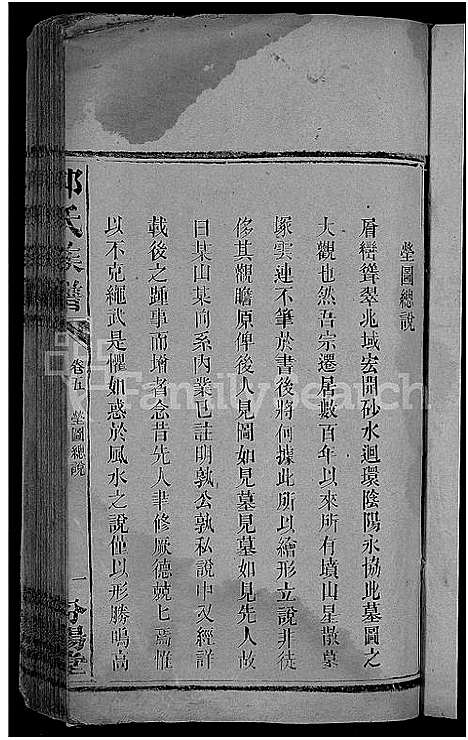 塋圖總說
層巒聳翠兆域宏開砂水迴環陰陽永協此墓圖之
大觀也然吾宗遷居數百年以來所有墳山星散墓
塚雲連不筆於書後將何據此所以繪形立說非徒
侈其觀瞻原俾後人見圖如見墓見墓如見先人故
曰某山某向系內業已註明孰公孰私說中又經詳
載後之踵事而增者念昔先人聿修厥德兢兢焉惟
以不克繩武是懼如惑於風水之說僅以形勝鳴高
氏族譜
卷五
塋圖總說
一
汾陽堂
FamilySearch